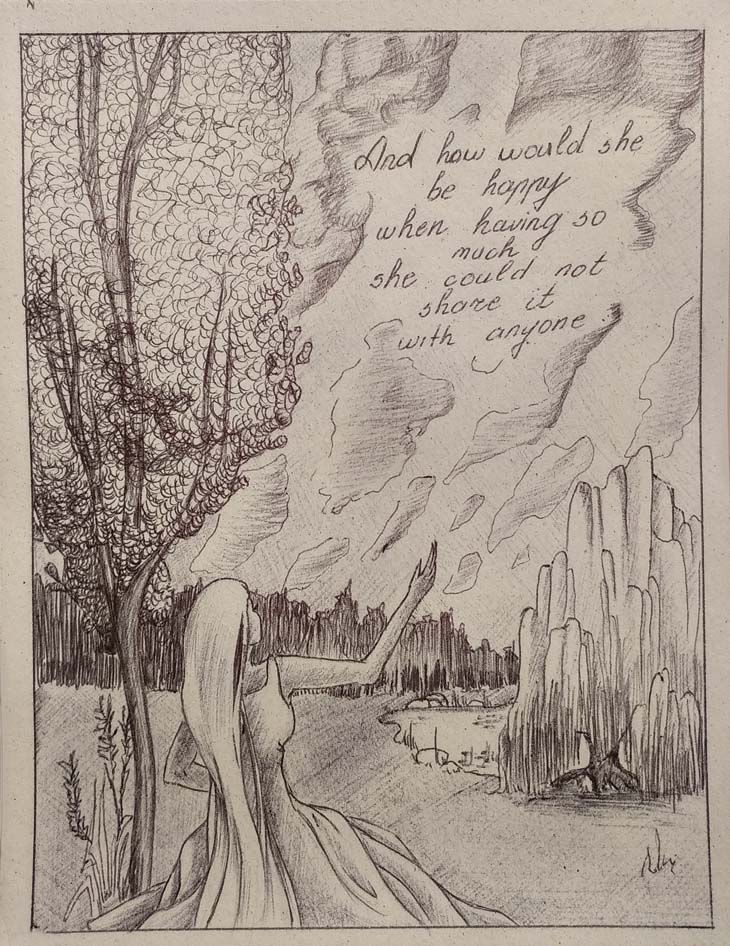 And how would she
be happy
when having so
much
she could not
share it
with anyone